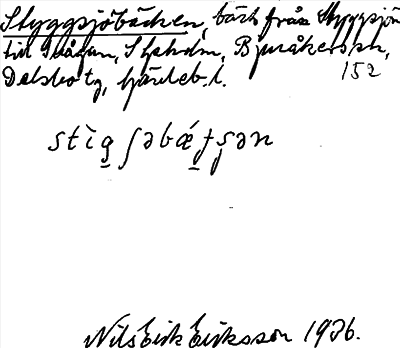 Styggsjöbäcken, bäck från Styggsjön
till Svågan, Sthskn, Bjuråkers sn,
Delsbo tg, Gävleb. l.
152
stìg̲ ʃəbǽ̲ƒʂən
Nils Erik Eriksson 1936.